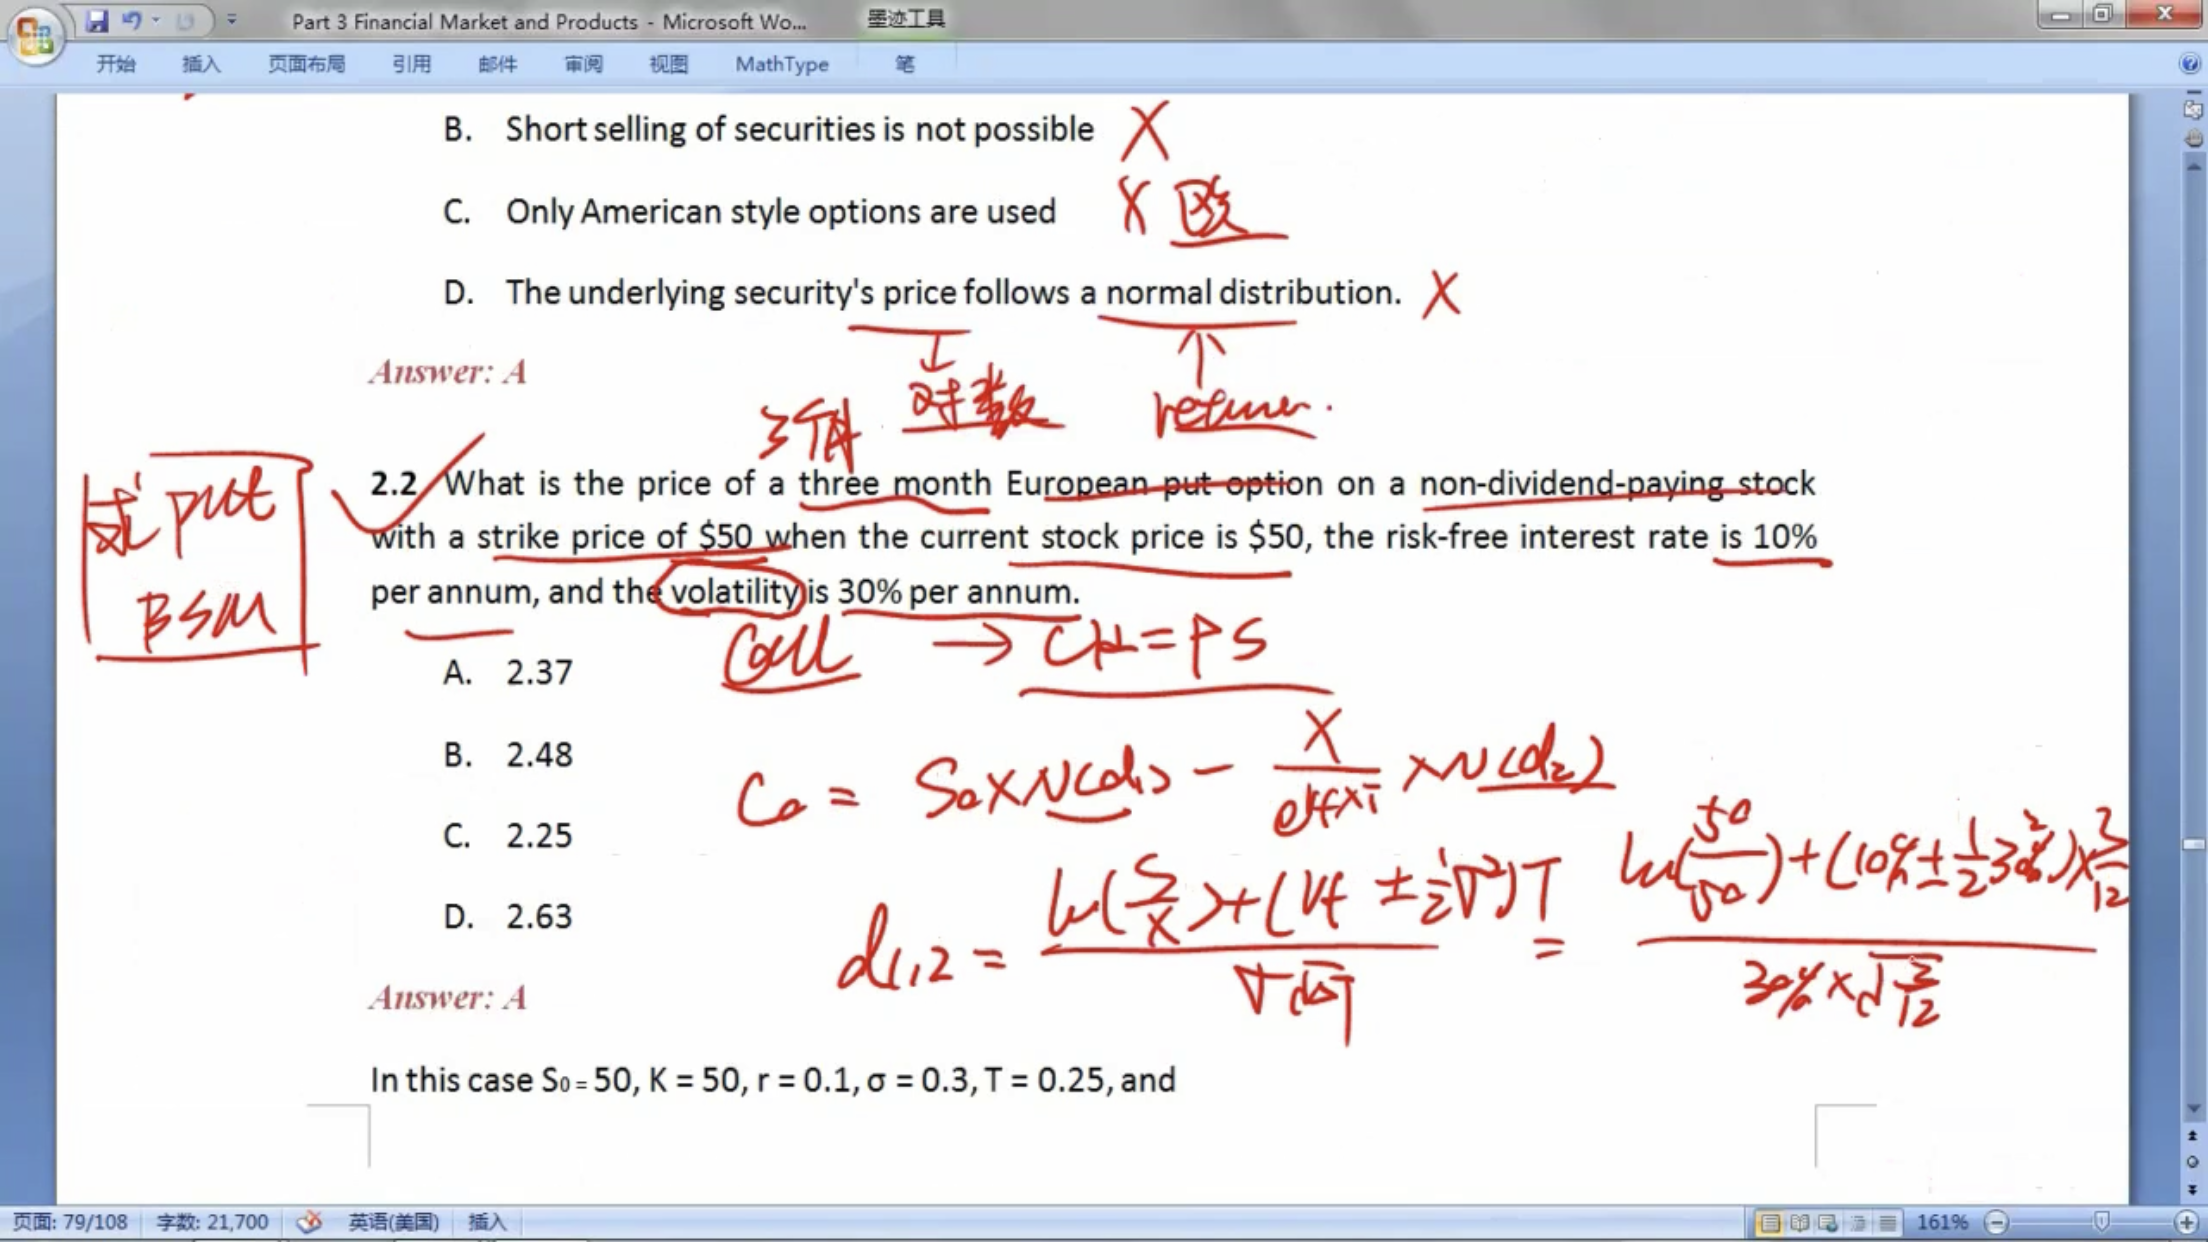 Part 3 Financial Market and Products - Microsoft Wo...
墨迹工具
开始 插入 页面布局 引用 邮件 审阅 视图 MathType 笔
B. Short selling of securities is not possible X
C. Only American style options are used X 欧
D. The underlying security's price follows a normal distribution. X
Answer: A
3个月 对数 return
2.2 What is the price of a three month European put option on a non-dividend-paying stock
with a strike price of $50 when the current stock price is $50, the risk-free interest rate is 10%
per annum, and the volatility is 30% per annum.
put
BSM
call → CK=PS
A. 2.37
B. 2.48
C. 2.25
D. 2.63
C₀ = S₀×N(d₁) - X/e^(rf×T) ×N(d₂)
d1,2 = (ln(S/X)+(rf ± 1/2σ²)T)/(σ√T) = (ln(50/50)+(10%±1/2 30%²)×3/12)/(30%×√(3/12))
Answer: A
In this case S₀ = 50, K = 50, r = 0.1, σ = 0.3, T = 0.25, and
页面: 79/108 字数: 21,700 英语(美国) 插入 161%